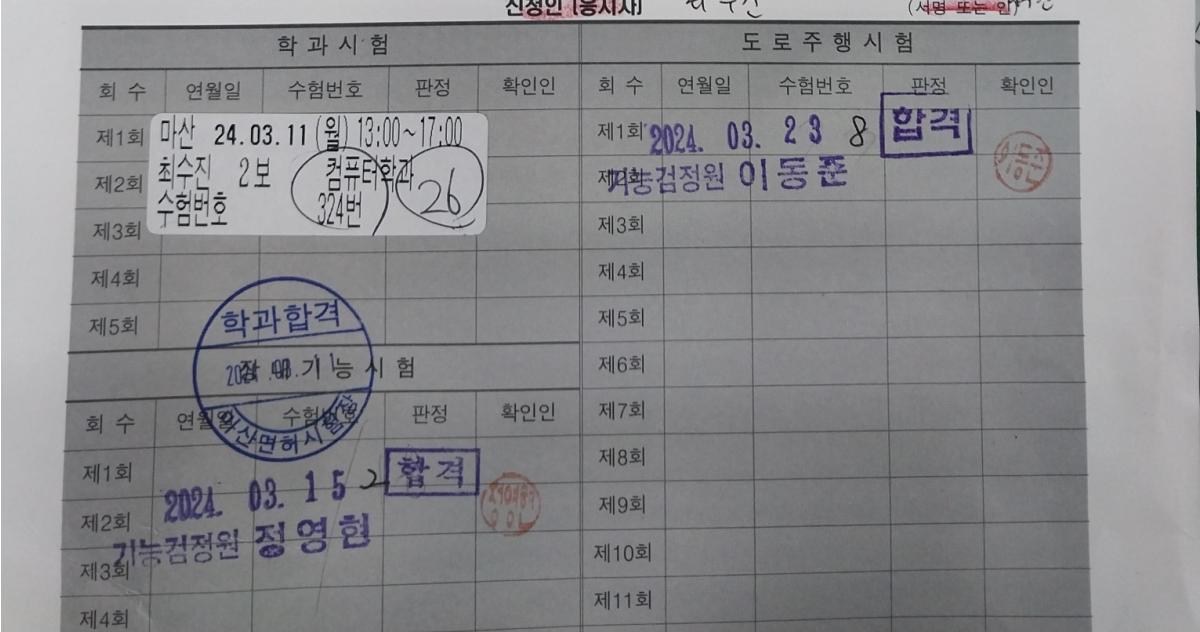 신청인 (응시자) 최수진 (서명 또는 인)
학과시험
회 수 연월일 수험번호 판정 확인인
제1회
제2회
제3회
제4회
제5회
마산 24.03.11 (월) 13:00~17:00
최수진 2보 컴퓨터학과
수험번호 324번
26
학과합격
마산면허시험장
장내기능시험
회 수 연월일 수험번호 판정 확인인
제1회
제2회
제3회
제4회
2024. 03. 15 2 합격
기능검정원 정영현
도로주행시험
회 수 연월일 수험번호 판정 확인인
제1회 2024. 03. 23 8 합격
제2회 기능검정원 이동준
제3회
제4회
제5회
제6회
제7회
제8회
제9회
제10회
제11회